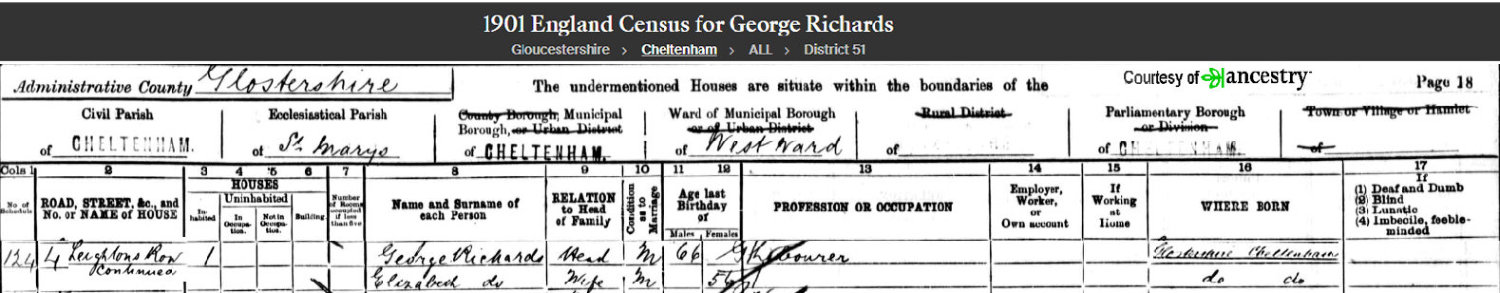 1901 England Census for George Richards
Gloucestershire > Cheltenham > ALL > District 51
Administrative County Glostershire The undermentioned Houses are situate within the boundaries of the Courtesy of ancestry Page 18
Civil Parish Ecclesiastical Parish County Borough, Municipal Ward of Municipal Borough Rural District Parliamentary Borough Town or Village or Hamlet
Borough, or Urban District or of Urban District or Division
of CHELTENHAM. of St Marys of CHELTENHAM. of West Ward of of CHELTENHAM. of
Cols 1 2 3 4 5 6 7 8 9 10 11 12 13 14 15 16 17
No. of Schedule
ROAD, STREET, &c., and No. or NAME of HOUSE
HOUSES
Inhabited
Uninhabited
In Occupation.
Not in Occupation.
Building.
Number of Rooms occupied if less than five
Name and Surname of each Person
RELATION to Head of Family
Condition as to Marriage
Age last Birthday of
Males Females
PROFESSION OR OCCUPATION
Employer, Worker, or Own account
If Working at Home
WHERE BORN
If
(1) Deaf and Dumb
(2) Blind
(3) Lunatic
(4) Imbecile, feeble-minded
124 4 Leightons Row 1 George Richards Head M 66 Glostershire Cheltenham
Continued Elizabeth do Wife M 56 do do